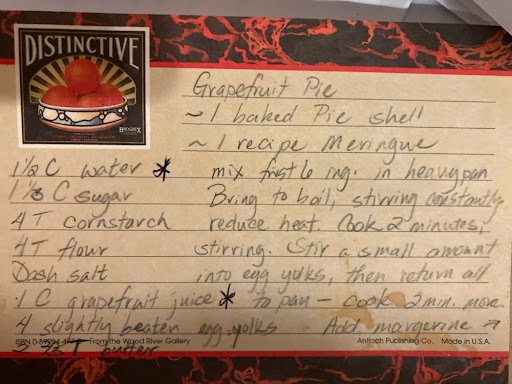 DISTINCTIVE
Grapefruit Pie
~ 1 baked Pie shell
~ 1 recipe Meringue
1 1/2 C water * mix first 6 ing. in heavy pan
1 1/3 C sugar Bring to boil, stirring constantly
4 T cornstarch reduce heat. Cook 2 minutes,
4 T flour stirring. Stir a small amount
Dash salt into egg yolks, then return all
1 C grapefruit juice * to pan – cook 2 min. more
4 slightly beaten egg yolks Add margerine →
From the Wood River Gallery Antioch Publishing Co. Made in U.S.A.
butter